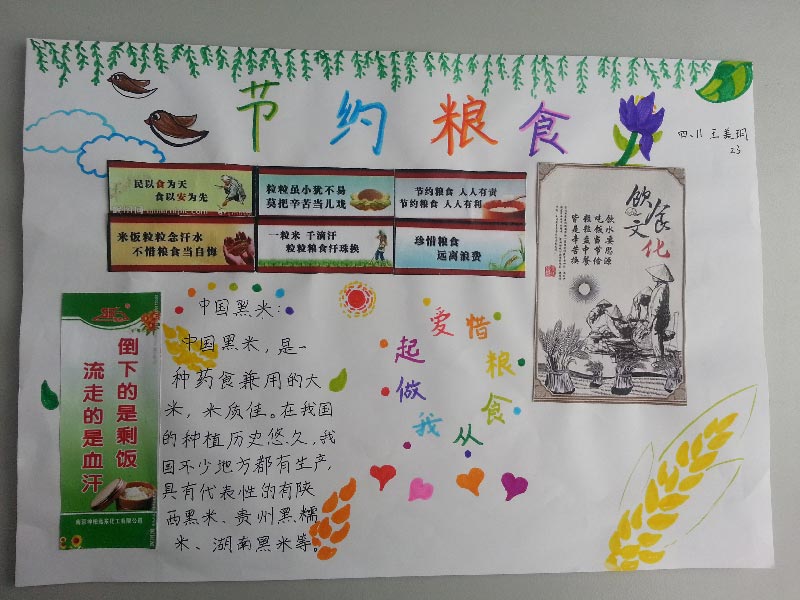 节约粮食
四、11 王美玥
23
民以食为天
食以安为先
粒粒虽小犹不易
莫把辛苦当儿戏
节约粮食 人人有责
节约粮食 人人有利
米饭粒粒念汗水
不惜粮食当自悔
一粒米 千滴汗
粒粒粮食汗珠换
珍惜粮食
远离浪费
饮食文化
饮水要思源
吃饭当节俭
粒粒盘中餐
皆是辛苦换
倒下的是剩饭
流走的是血汗
中国黑米:
中国黑米,是一
种药食兼用的大
米,米质佳。在我国
的种植历史悠久,我
国不少地方都有生产,
具有代表性的有陕
西黑米、贵州黑糯
米、湖南黑米等。
爱惜粮食从我做起